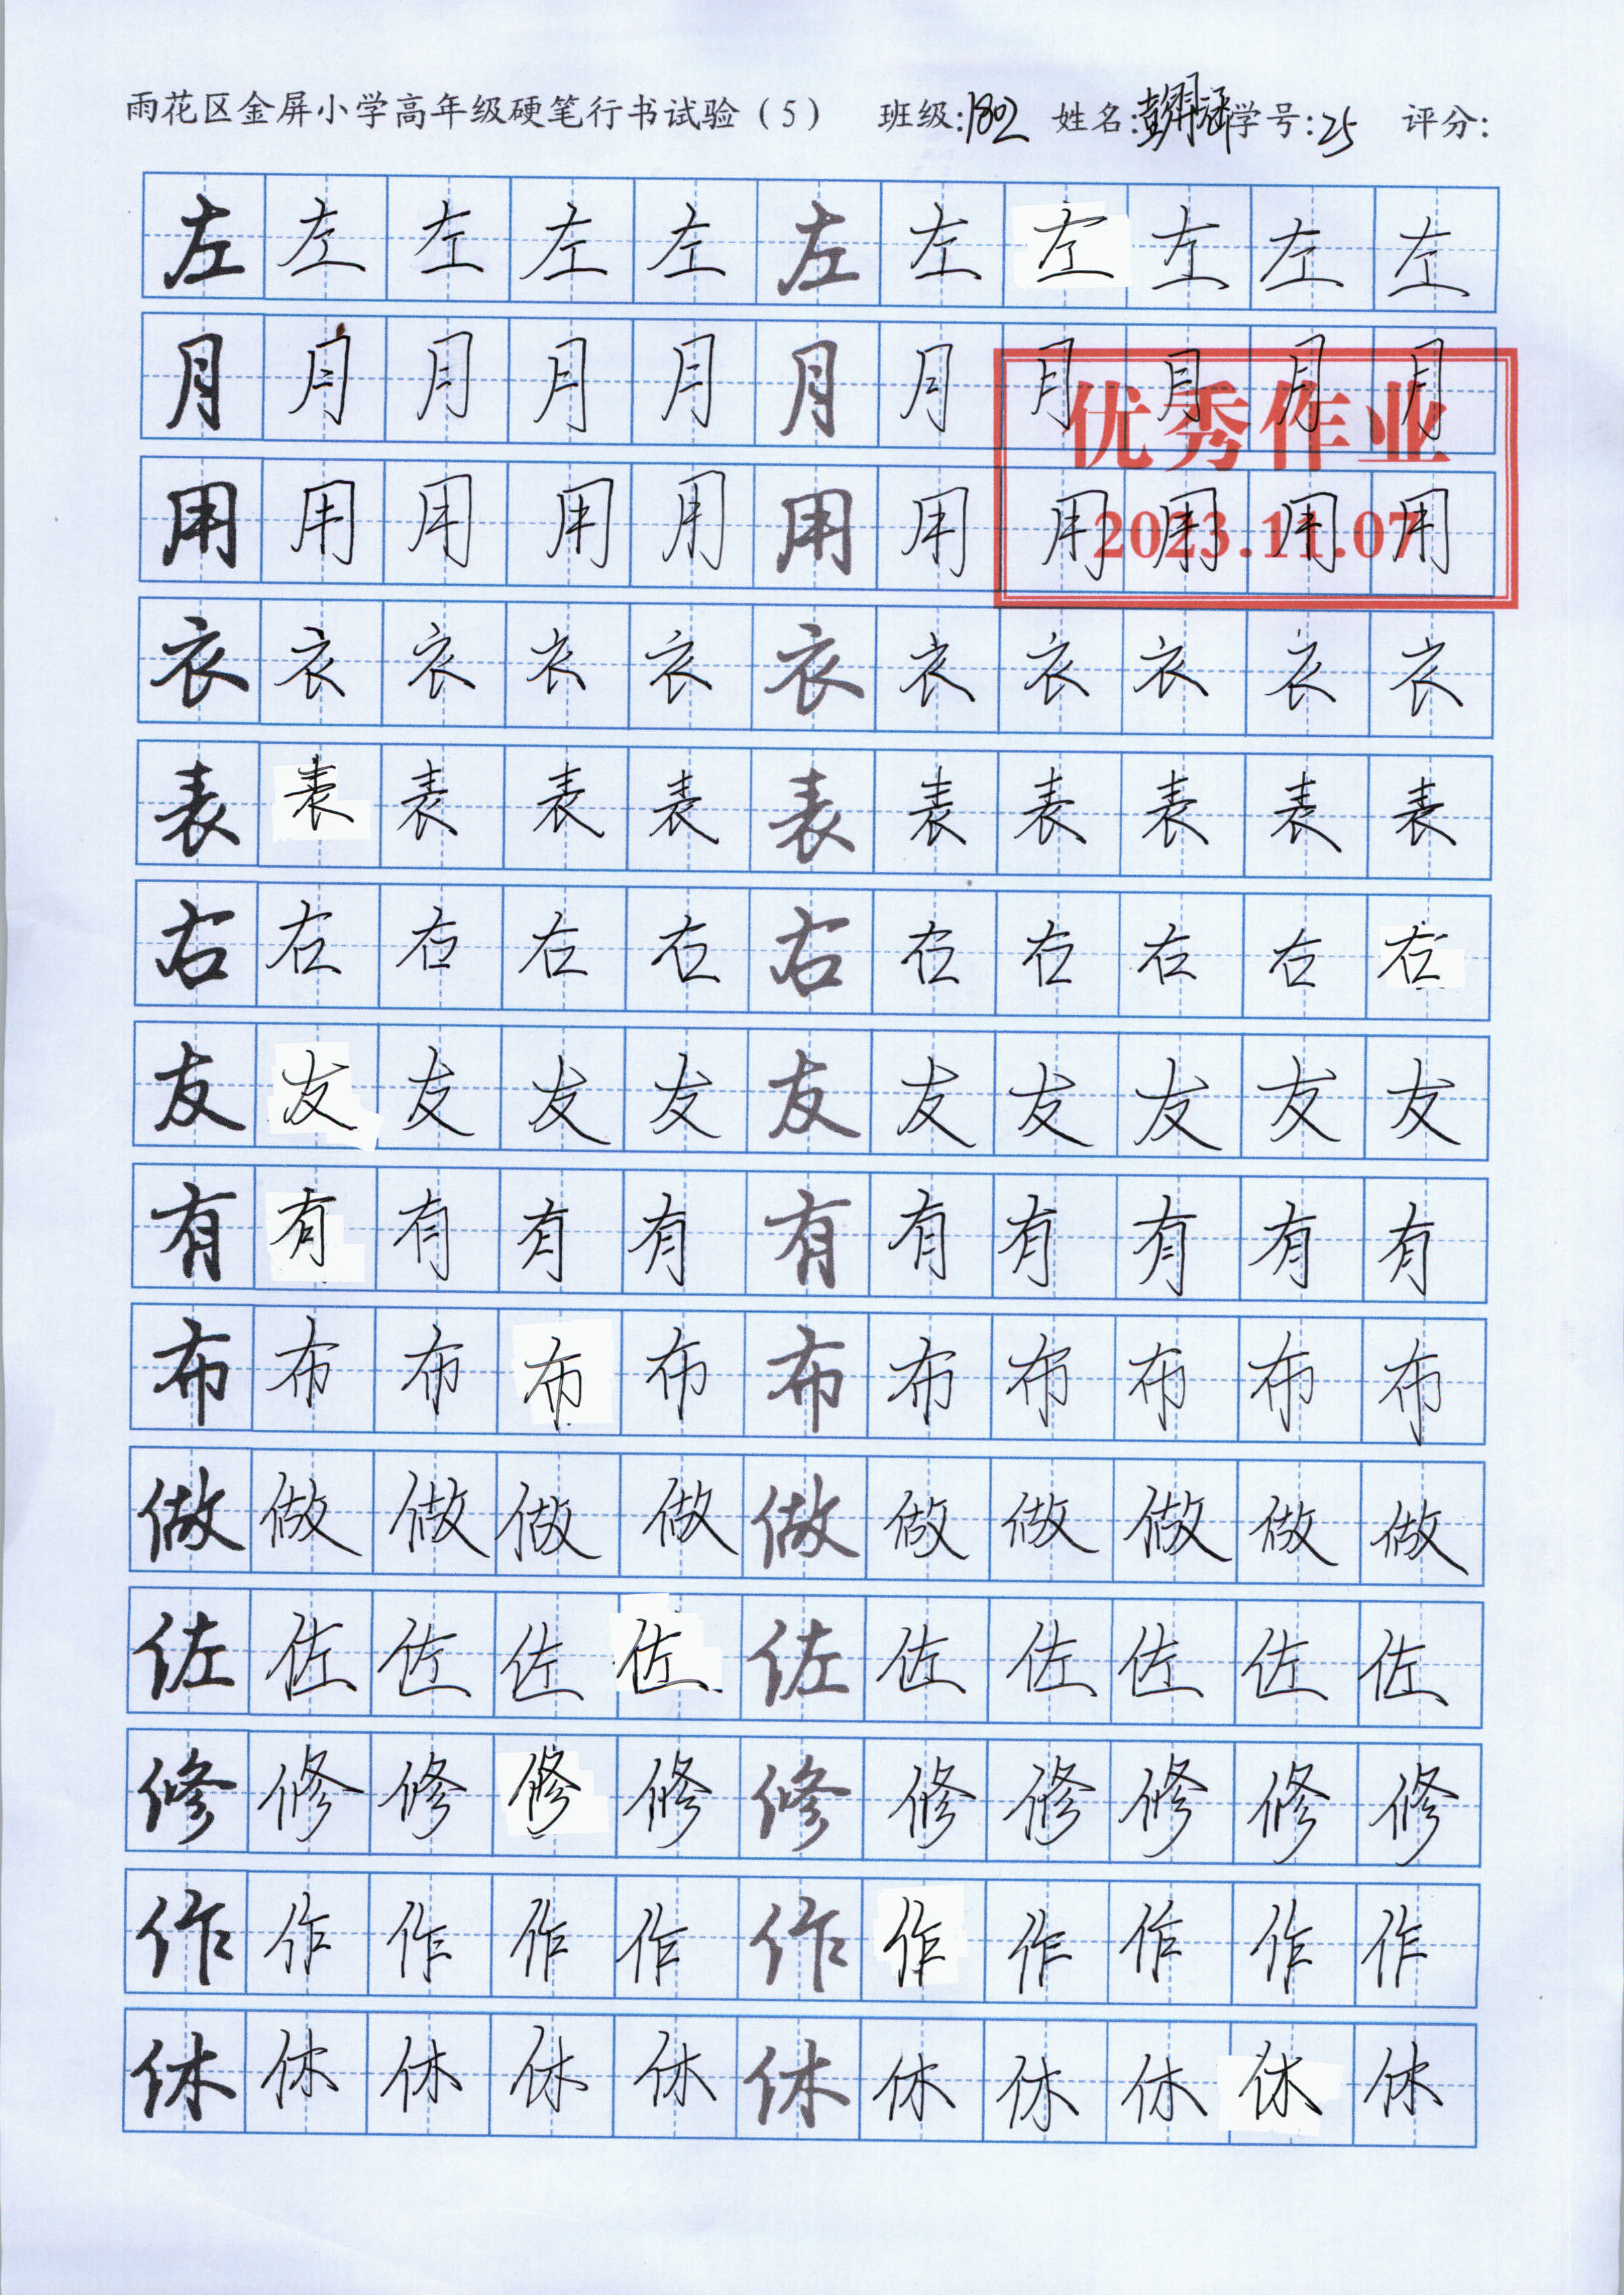 雨花区金屏小学高年级硬笔行书试验（5） 班级:1802 姓名:彭羽涵 学号:25 评分:
左左左左左左左左左左左
月月月月月月月月月月月
优秀作业
用用用用用用用用用用用
2023.11.07
衣衣衣衣衣衣衣衣衣衣衣
表表表表表表表表表表表
右右右右右右右右右右右
友友友友友友友友友友友
有有有有有有有有有有有
布布布布布布布布布布布
做做做做做做做做做做做
佐佐佐佐佐佐佐佐佐佐佐
修修修修修修修修修修修
作作作作作作作作作作作
休休休休休休休休休休休